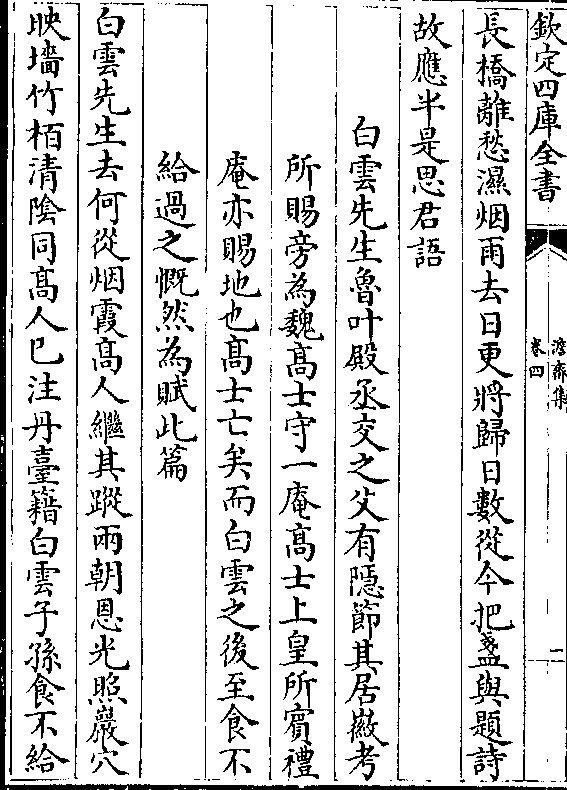 欽定四庫全書
澹齋集
卷四
二
長橋離愁濕烟雨去日更將歸日數從今把盞與題詩
故應半是思君語
白雲先生魯叶殿丞交之父有隱節其居徽考
所賜旁為魏髙士守一庵髙士上皇所賓禮
庵亦賜地也髙士亡矣而白雲之後至食不
給過之慨然為賦此篇
白雲先生去何從烟霞髙人繼其蹤兩朝恩光照巖穴
映墻竹栢清陰同髙人已注丹臺籍白雲子孫食不給